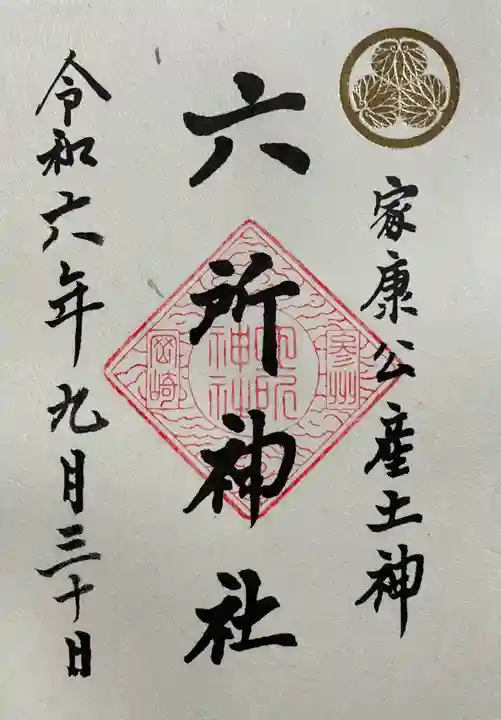 家康公産土神
六所神社
参州
六所
神社
岡崎
令和六年九月三十日